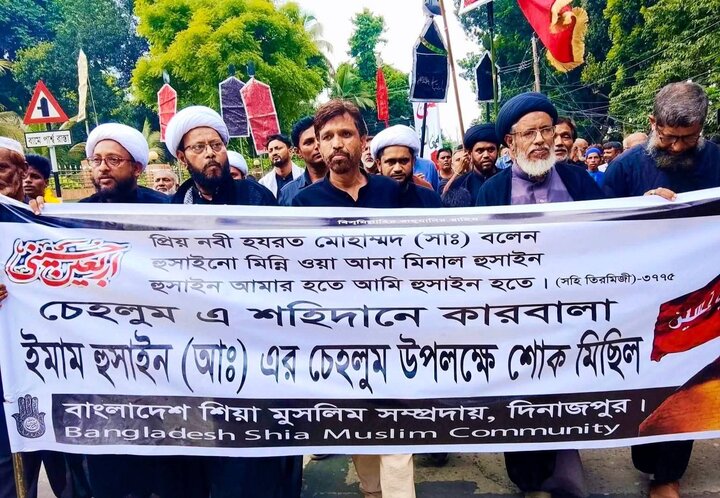 বামে পার্শ্ব রাস্তা
বিসমিল্লাহির রাহমানির রাহিম
اربعین حسینی
প্রিয় নবী হযরত মোহাম্মদ (সাঃ) বলেন
হুসাইনো মিন্নি ওয়া আনা মিনাল হুসাইন
হুসাইন আমার হতে আমি হুসাইন হতে । (সহি তিরমিজী)-৩৭৭৫
চেহলুম এ শহিদানে কারবালা
ইমাম হুসাইন (আঃ) এর চেহলুম উপলক্ষে শোক মিছিল
বাংলাদেশ শিয়া মুসলিম সম্প্রদায়, দিনাজপুর ।
Bangladesh Shia Muslim Community